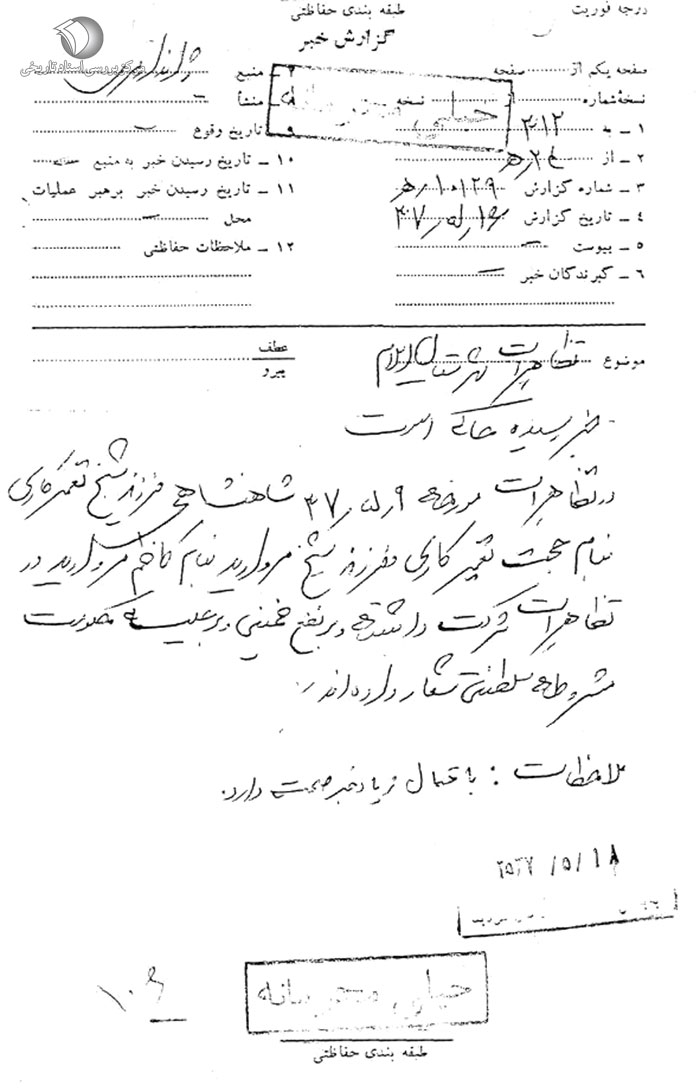 درجه فوریت
طبقه بندی حفاظتی
گزارش خبر
مرکز بررسی اسناد تاریخی
صفحه یکم از صفحه
نسخهٔ شماره از نسخه
خیلی محرمانه
۱ ـ به ۳۱۲
۲ ـ از
۳ ـ شماره گزارش ۱۰۱۲۹
۴ ـ تاریخ گزارش
۵ ـ پیوست ـ
۶ ـ گیرندگان خبر ـ
۷ ـ منبع
۸ ـ منشأ ـ
۹ ـ تاریخ وقوع ـ
۱۰ ـ تاریخ رسیدن خبر به منبع
۱۱ ـ تاریخ رسیدن خبر برهبر عملیات
محل ـ
۱۲ ـ ملاحظات حفاظتی
موضوع تظاهرات شهرستان ایلام
عطف
پیرو
خبر رسیده حاکی است
در تظاهرات مورخه ۹ر۵ر۳۷ شاهنشاهی فرزند شیخ تعمیرکاری
بنام حجت تعمیرکاری و فرزند شیخ مروارید بنام کاظم مروارید در
تظاهرات شرکت داشته و بر نفع خمینی و بر علیه حکومت
مشروطه سلطنتی شعار داده‌اند.
ملاحظات : باحتمال زیاد خبر صحت دارد.
۲۵۳۷/۵/۱۸
خیلی محرمانه
طبقه بندی حفاظتی